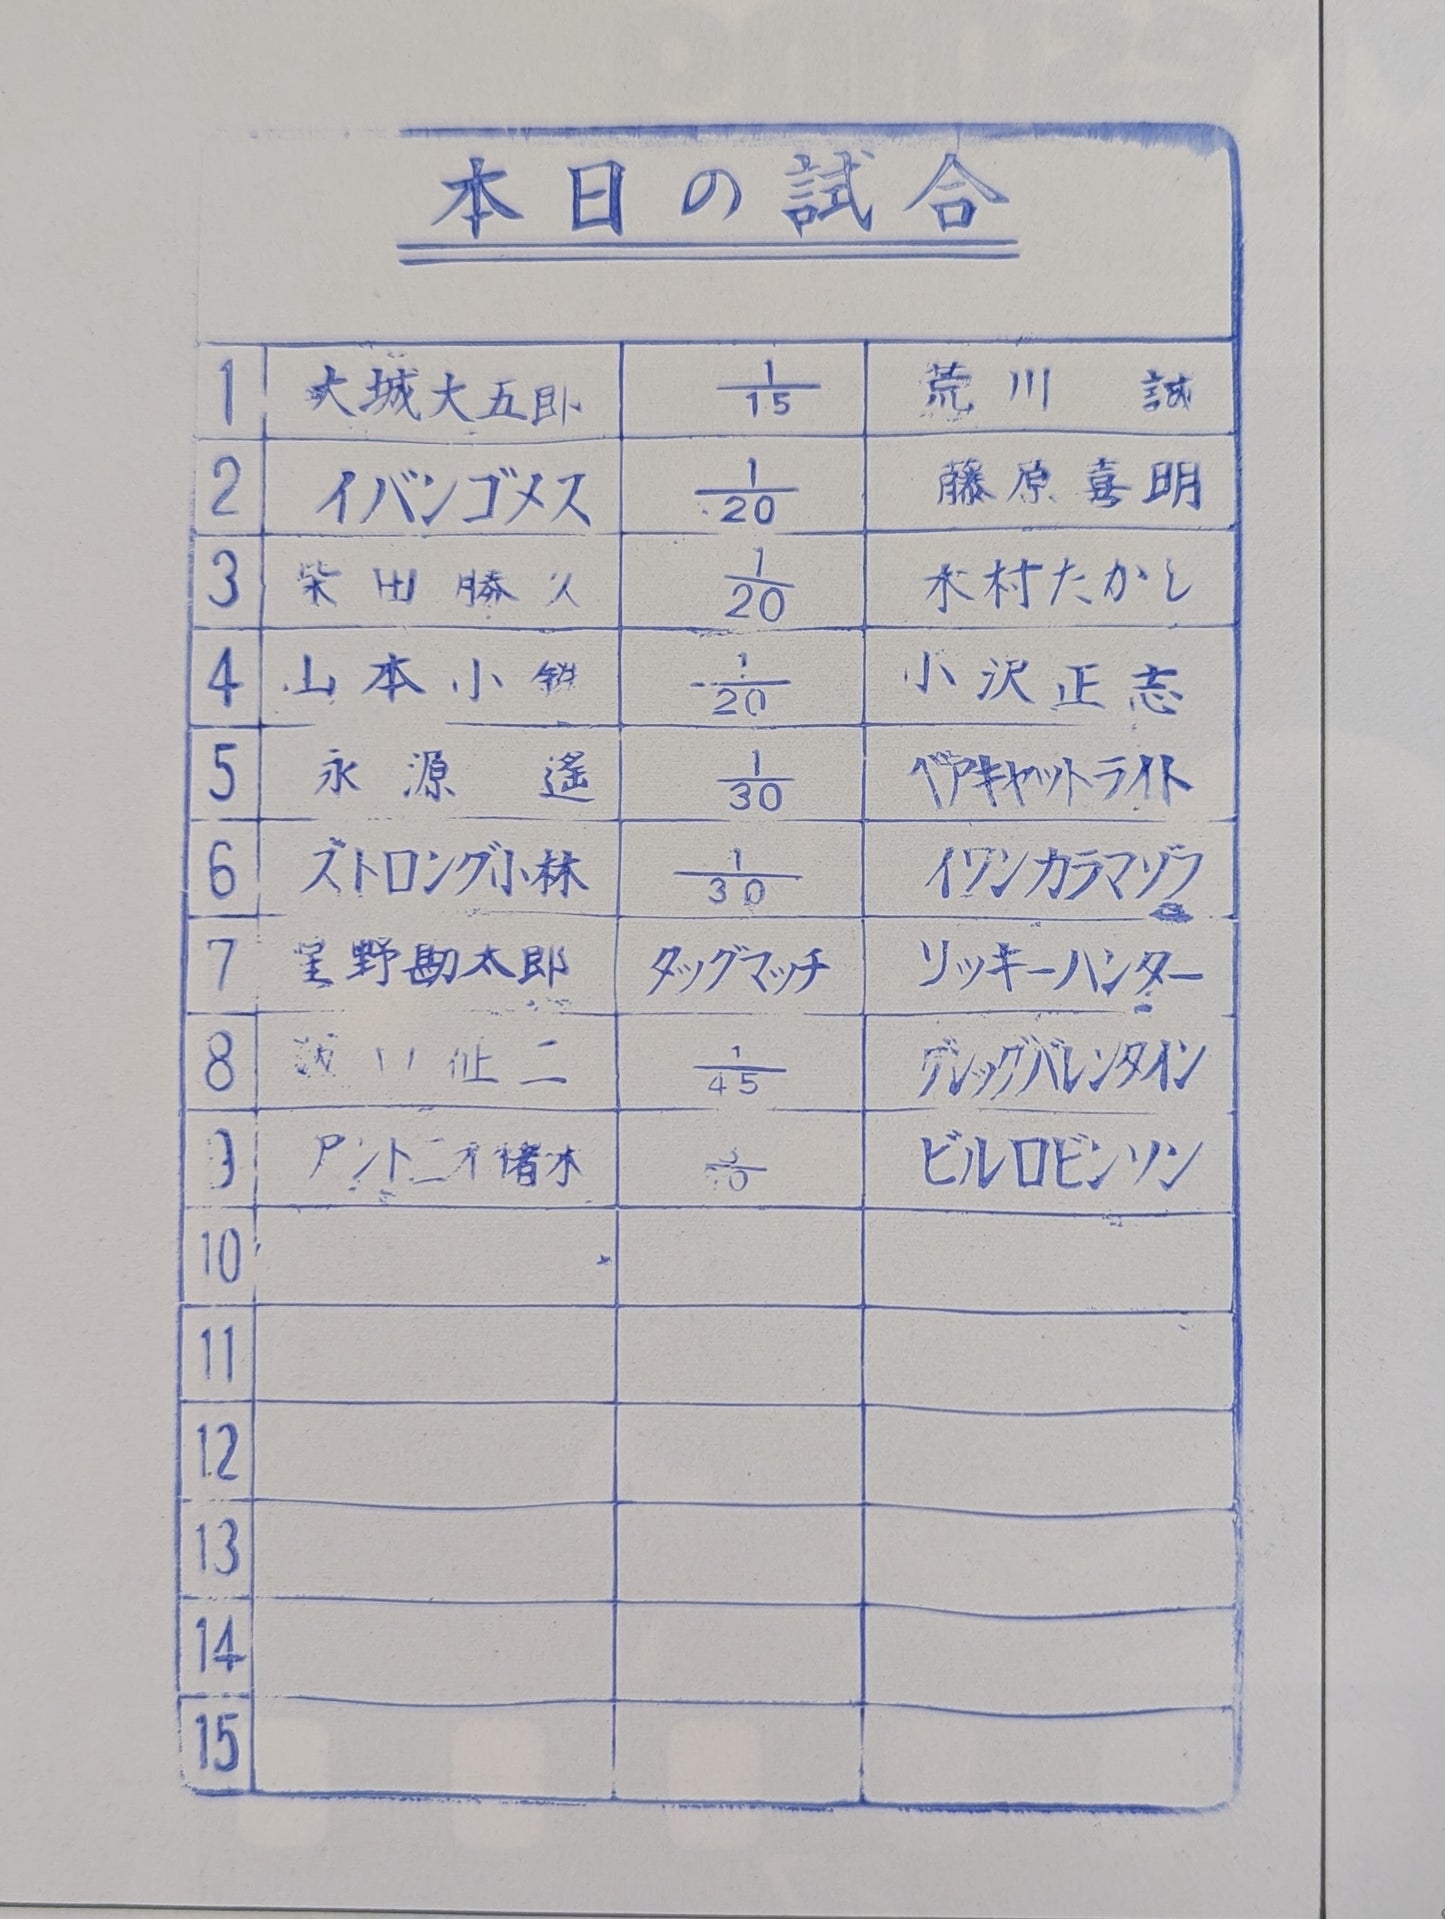 本日の試合
1 大城大五郎 1/15 荒川 誠
2 イバンゴメス 1/20 藤原喜明
3 柴田勝久 1/20 木村たかし
4 山本小鉄 1/20 小沢正志
5 永源 遙 1/30 ベアキャットライト
6 ストロング小林 1/30 イワンカラマゾフ
7 星野勘太郎 タッグマッチ リッキーハンター
8 征二 1/45 グレッグバレンタイン
9 アントニオ猪木 ビルロビンソン
10
11
12
13
14
15